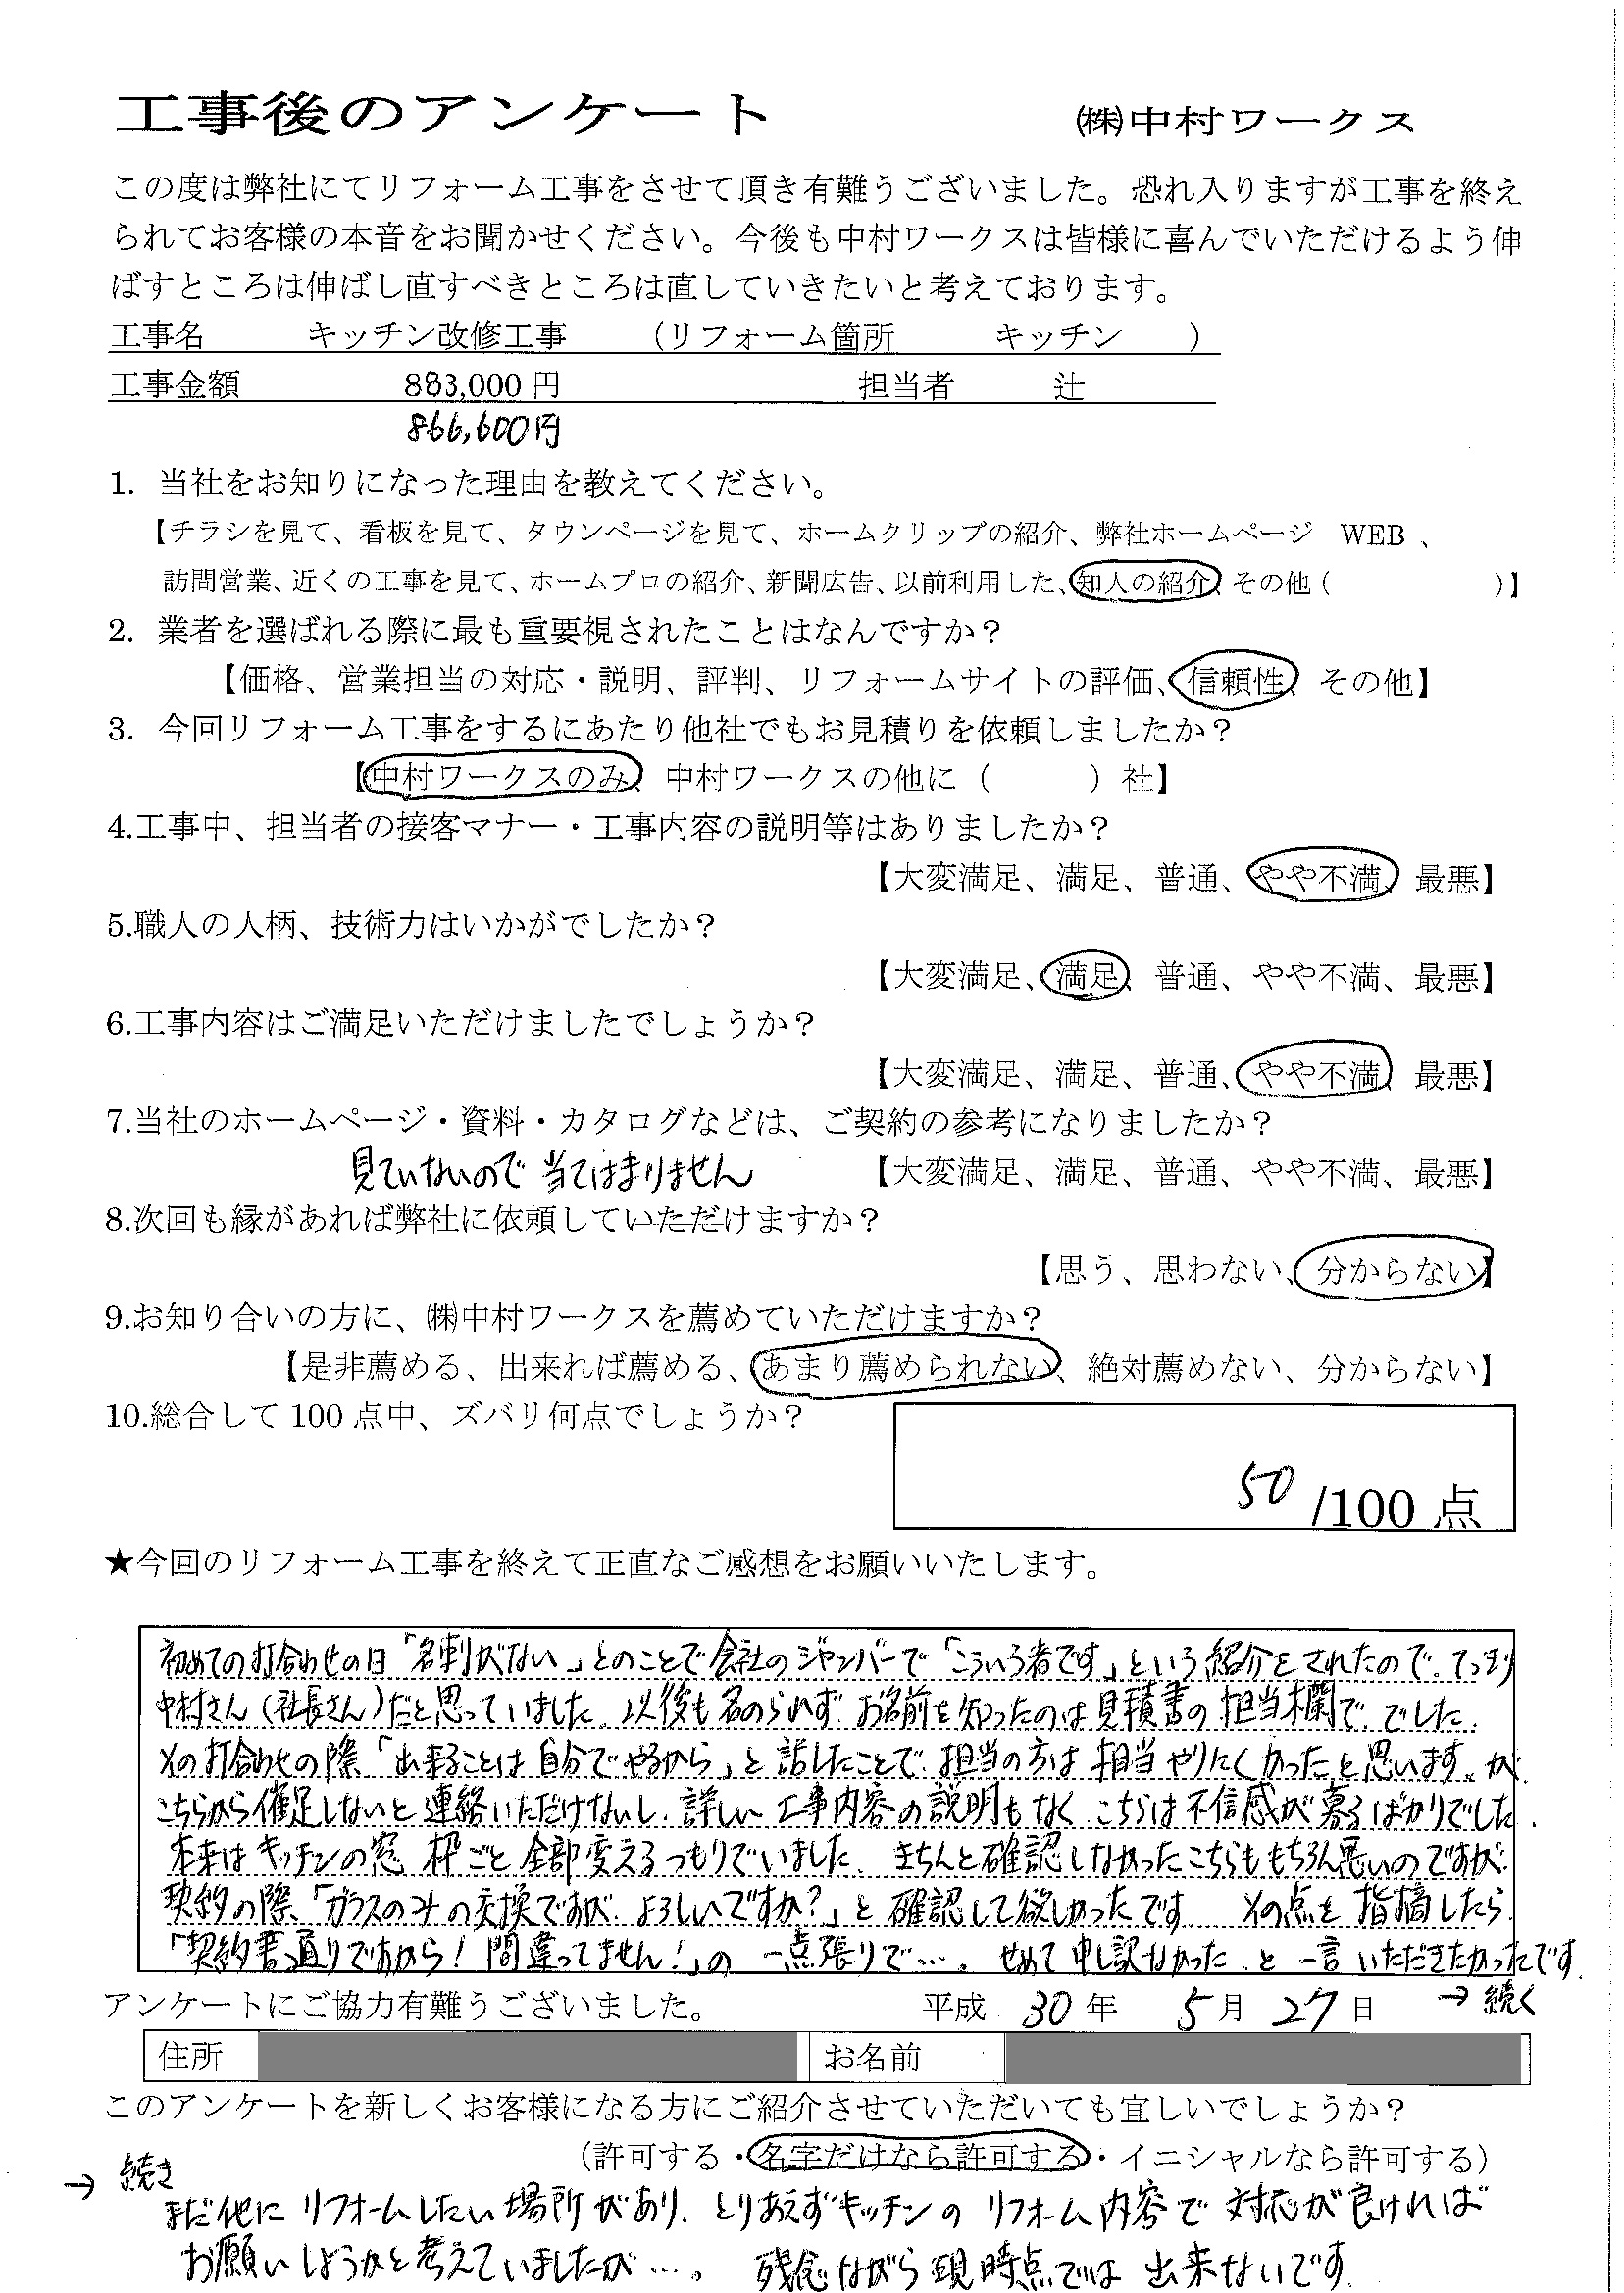 工事後のアンケート ㈱中村ワークス
この度は弊社にてリフォーム工事をさせて頂き有難うございました。恐れ入りますが工事を終え
られてお客様の本音をお聞かせください。今後も中村ワークスは皆様に喜んでいただけるよう伸
ばすところは伸ばし直すべきところは直していきたいと考えております。
工事名 キッチン改修工事 （リフォーム箇所 キッチン ）
工事金額 883,000 円 担当者 辻
866,600円
1. 当社をお知りになった理由を教えてください。
【チラシを見て、看板を見て、タウンページを見て、ホームクリップの紹介、弊社ホームページ WEB 、
訪問営業、近くの工事を見て、ホームプロの紹介、新聞広告、以前利用した、知人の紹介、その他（ ）】
2. 業者を選ばれる際に最も重要視されたことはなんですか？
【価格、営業担当の対応・説明、評判、リフォームサイトの評価、信頼性、その他】
3. 今回リフォーム工事をするにあたり他社でもお見積りを依頼しましたか？
【中村ワークスのみ、中村ワークスの他に（ ）社】
4.工事中、担当者の接客マナー・工事内容の説明等はありましたか？
【大変満足、満足、普通、やや不満、最悪】
5.職人の人柄、技術力はいかがでしたか？
【大変満足、満足、普通、やや不満、最悪】
6.工事内容はご満足いただけましたでしょうか？
【大変満足、満足、普通、やや不満、最悪】
7.当社のホームページ・資料・カタログなどは、ご契約の参考になりましたか？
見ていないので 当てはまりません 【大変満足、満足、普通、やや不満、最悪】
8.次回も縁があれば弊社に依頼していただけますか？
【思う、思わない、分からない】
9.お知り合いの方に、㈱中村ワークスを薦めていただけますか？
【是非薦める、出来れば薦める、あまり薦められない、絶対薦めない、分からない】
10.総合して 100 点中、ズバリ何点でしょうか？
50 /100 点
★今回のリフォーム工事を終えて正直なご感想をお願いいたします。
初めての打合わせの日「名刺がない」とのことで会社のジャンバーで「こういう者です」という紹介をされたので、てっきり
中村さん（社長さん）だと思っていました。以後も名のられず、お名前を知ったのは見積書の担当欄で、でした。
その打合わせの際「出来ることは自分でやるから」と話したことで、担当の方は担当やりにくかったと思います。が、
こちらから催促しないと連絡いただけないし、詳しい工事内容の説明もなく、こちらは不信感が募るばかりでした。
本来はキッチンの窓、枠ごと全部変えるつもりでいました。きちんと確認しなかったこちらももちろん悪いのですが、
契約の際「ガラスのみの交換ですが、よろしいですか？」と確認して欲しかったです その点を指摘したら、
「契約書通りですから！間違ってません！」の一点張りで…。せめて申し訳なかった、と一言いただきたかったです。
アンケートにご協力有難うございました。 平成 30 年 5 月 27 日 → 続く
住所 お名前
このアンケートを新しくお客様になる方にご紹介させていただいても宜しいでしょうか？
（許可する・名字だけなら許可する・イニシャルなら許可する）
→ 続き
まだ他にリフォームしたい場所があり、とりあえずキッチンのリフォーム内容で対応が良ければ
お願いしようかと考えていましたが…。 残念ながら現時点では出来ないです。